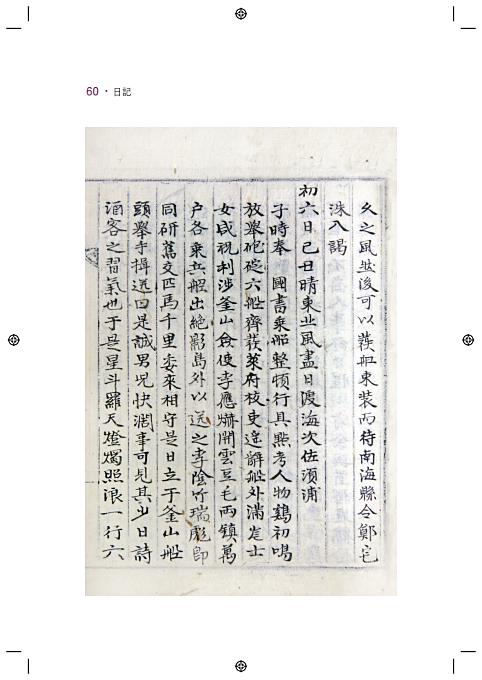 60 · 日記
久之風並後可以發船束裝而待南海縣令鄭宅
洙入謁
初六日己丑晴東北風盡日渡海次佐須浦
子時奉 國書乘船整頓行具點考人物鷄初鳴
放擧砲碇六船齊發萊府校吏逞辭船外滿庭士
女咸祝利涉釜山僉使李應爀開雲豆毛兩鎭萬
户各乘兵船出絶影島外以送之李陰竹瑞彪卽
同研舊交匹馬千里委來相守是日立于釜山船
頭擧手揖送曰是誠男兒快濶事可見其少日詩
酒客之習氣也于是星斗羅天燈燭照浪一行六